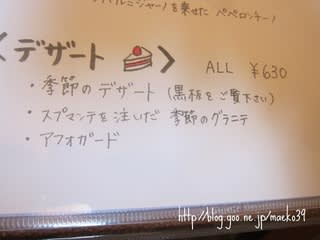 パルミジャーノを乗せた ペペロンチーノ
〈デザート 〉 ALL ¥630
・季節のデザート (黒板をご覧下さい)
・スプマンテを注いだ 季節のグラニテ
・アフォガード
http://blog.goo.ne.jp/maeko39